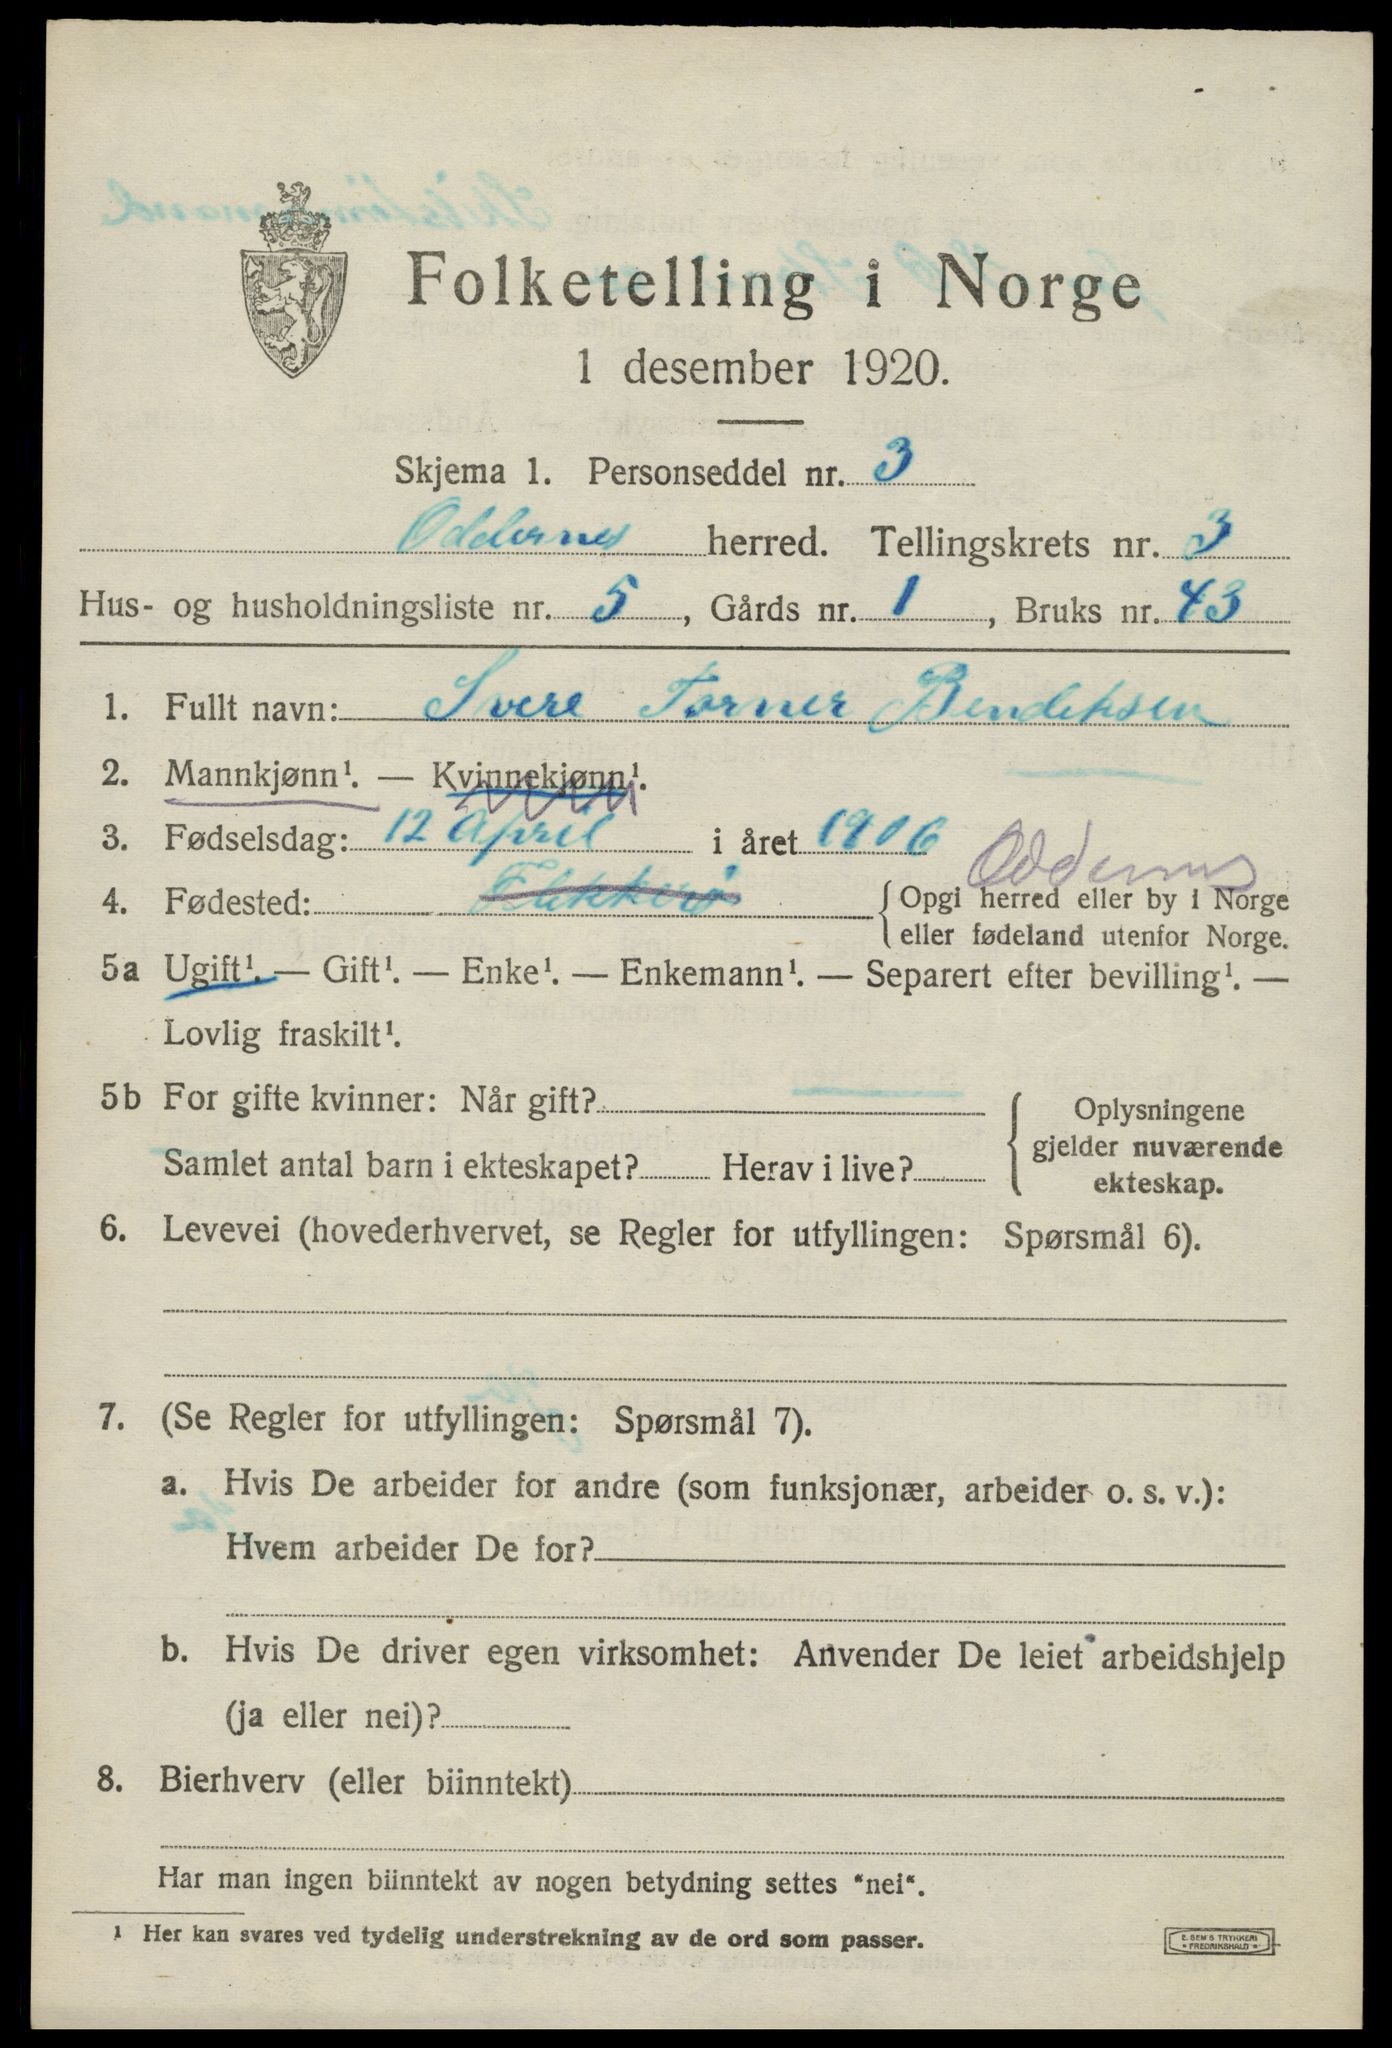 Folketelling i Norge
1 desember 1920.
Skjema 1. Personseddel nr. 3
Oddernes herred. Tellingskrets nr. 3
Hus- og husholdningsliste nr. 5, Gårds nr. 1, Bruks nr. 43
1. Fullt navn: Svere Torner Bendiksen
2. Mannkjønn¹. — Kvinnekjønn¹.
3. Fødselsdag: 12 April i året 1906
Oddernes
4. Fødested: Flekkerø { Opgi herred eller by i Norge
eller fødeland utenfor Norge.
5a Ugift¹. — Gift¹. — Enke¹. — Enkemann¹. — Separert efter bevilling¹. —
Lovlig fraskilt¹.
5b For gifte kvinner: Når gift?
Samlet antal barn i ekteskapet? Herav i live?
{ Oplysningene
gjelder nuværende
ekteskap.
6. Levevei (hovederhvervet, se Regler for utfyllingen: Spørsmål 6).
7. (Se Regler for utfyllingen: Spørsmål 7).
a. Hvis De arbeider for andre (som funksjonær, arbeider o. s. v.):
Hvem arbeider De for?
b. Hvis De driver egen virksomhet: Anvender De leiet arbeidshjelp
(ja eller nei)?
8. Bierhverv (eller biinntekt)
Har man ingen biinntekt av nogen betydning settes "nei".
¹ Her kan svares ved tydelig understrekning av de ord som passer.
E. SEM'S TRYKKERI
* FREDRIKSHALD *